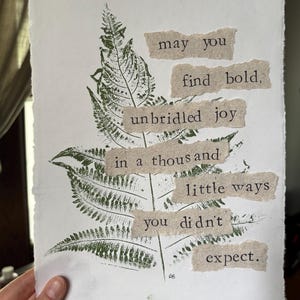 may you
find bold,
unbridled joy
in a thousand
little ways
you didn't
expect.